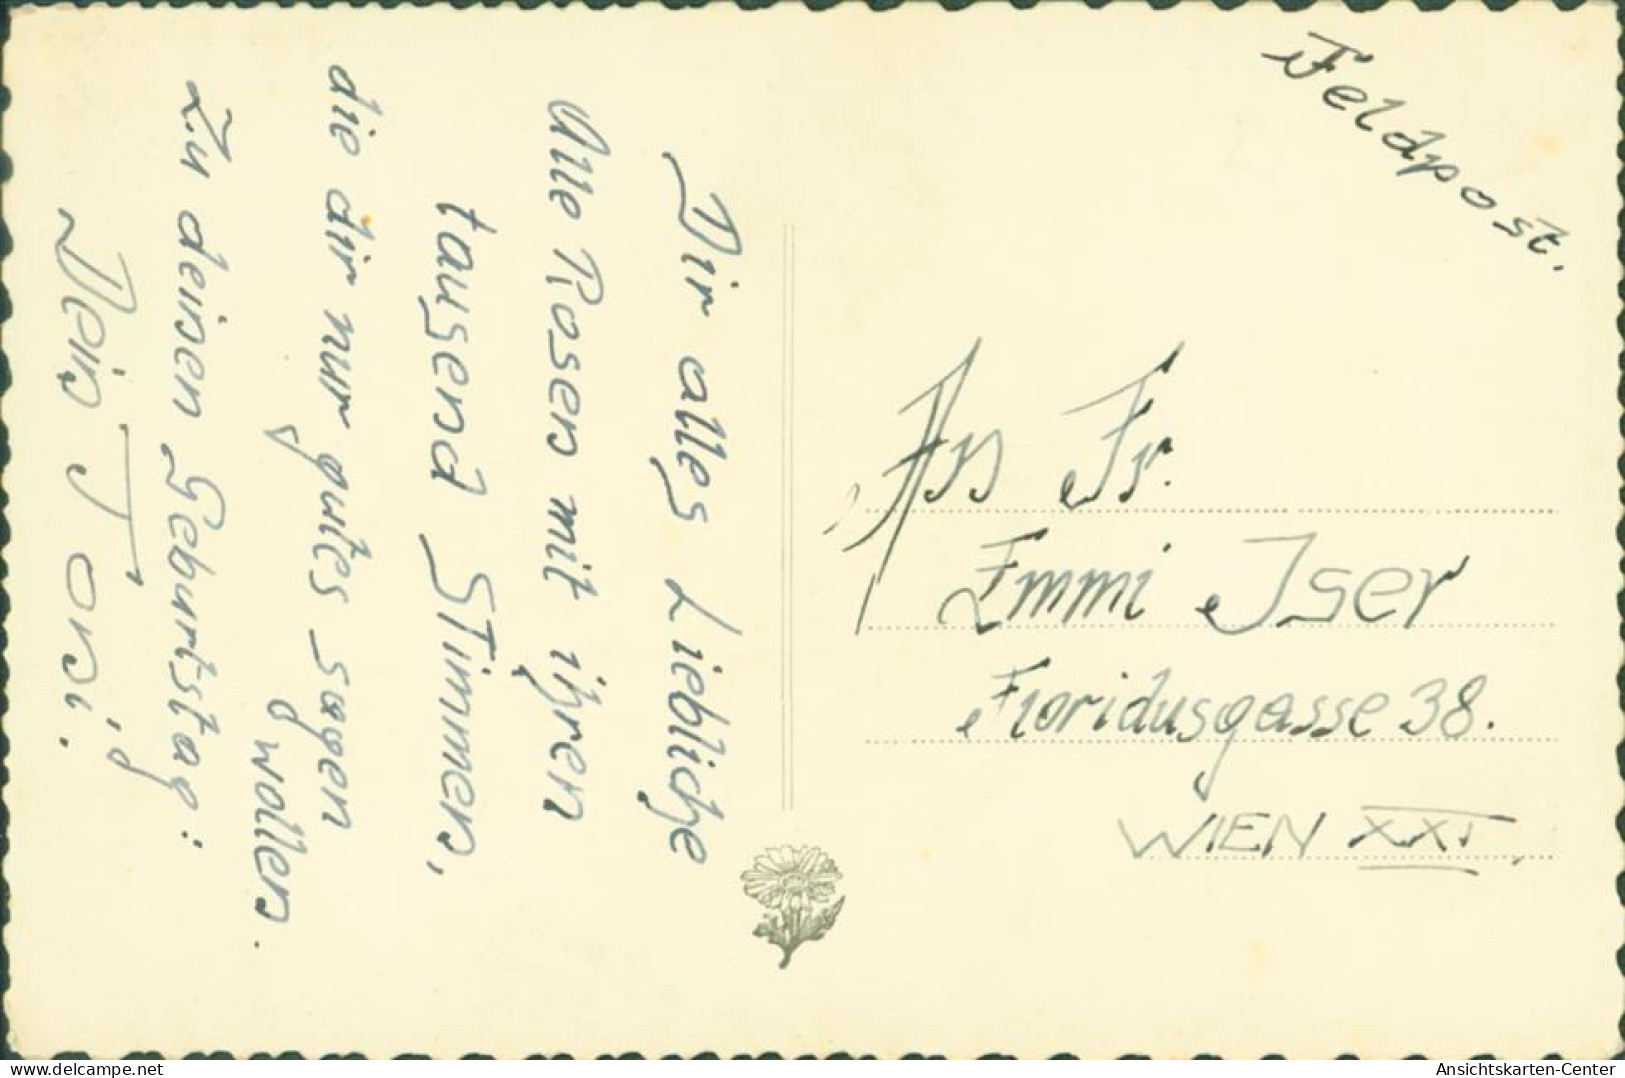 Feldpost.
An Fr.
Emmi Iser
Floridusgasse 38.
WIEN XXI.
Dir alles Liebliche
Alle Rosen mit ihren
tausend Stimmen,
die dir nur gutes sagen
wollen.
Zu deinen Geburtstag:
Dein Toni.
delcampe.net
Ansichtskarten-Center